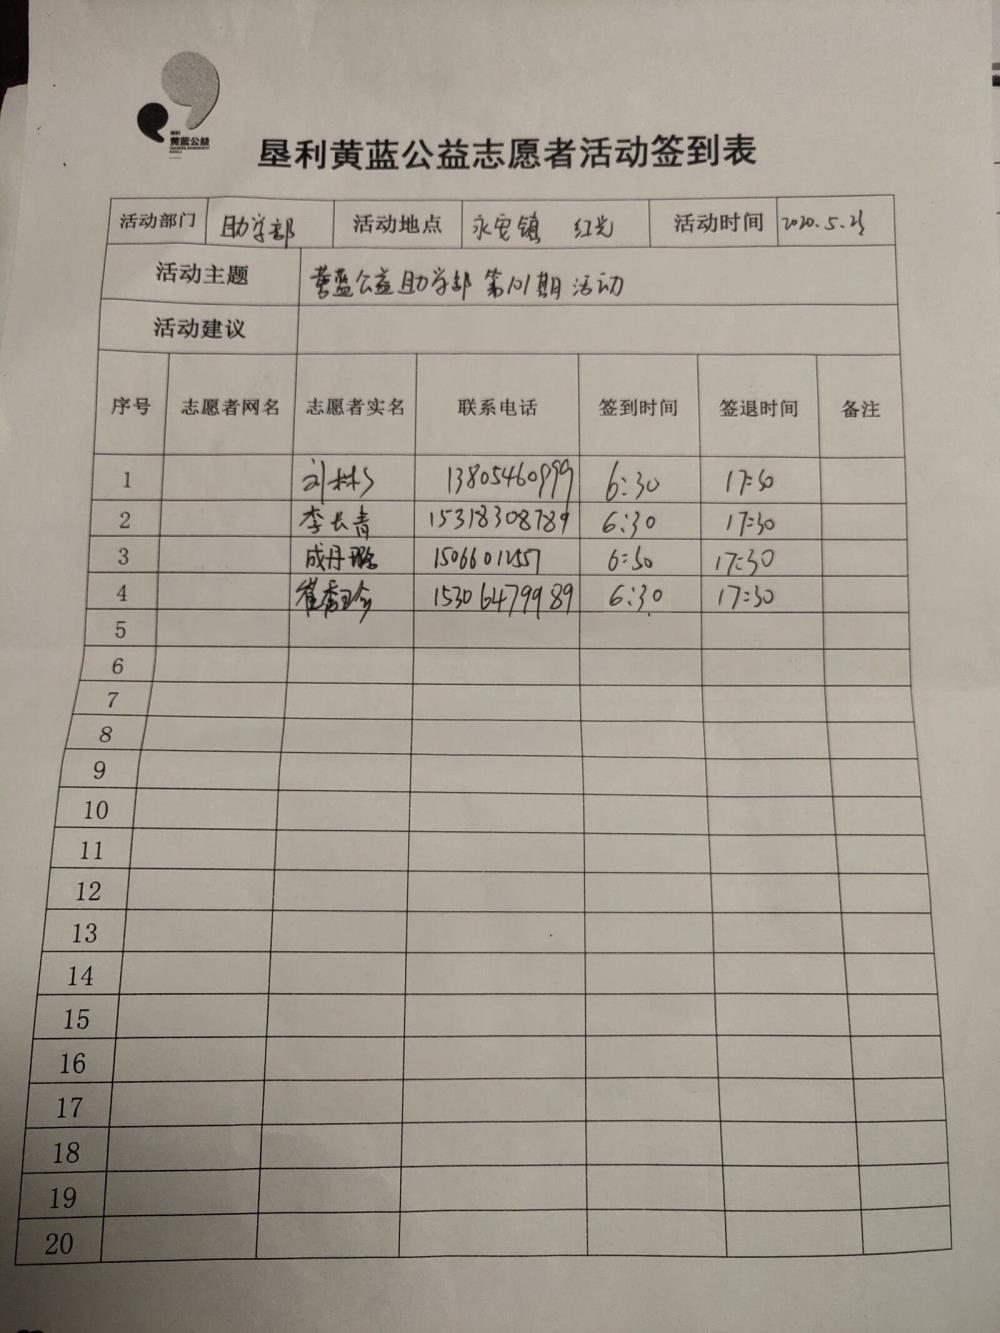 垦利
黄蓝公益
垦利黄蓝公益志愿者活动签到表
活动部门 助学部 活动地点 永安镇 红光 活动时间 2020.5.
活动主题 黄蓝公益助学部 第101期活动
活动建议
序号 志愿者网名 志愿者实名 联系电话 签到时间 签退时间 备注
1 刘 13805460999 6:30 17:30
2 李长青 15318308789 6:30 17:30
3 成丹璐 15066012557 6:30 17:30
4 崔秀珍 15306479989 6:30 17:30
5
6
7
8
9
10
11
12
13
14
15
16
17
18
19
20